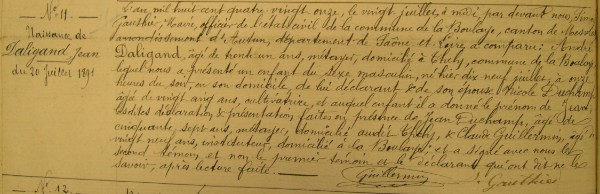 N° 11.
Naissance de
Daligand, Jean
du 20 Juillet 1891
L'an mil huit cent quatre vingt onze, le vingt juillet, à midi, par devant nous, Simon
Gauthier, Maire, officier de l'état civil de la commune de la Boulaye, canton de Mesvres
arrondissement d'Autun, département de Saône et Loire a comparu: André
Daligand, âgé de trente un ans, métayer, domicilié à Thély, commune de la Boulaye
lequel nous a présenté un enfant du sexe masculin, né hier dix neuf juillet, à onze
heures du soir, en son domicile, de lui déclarant & de son épouse Nicole Duchamp,
âgée de vingt cinq ans, cultivatrice, et auquel enfant il a donné le prénom de Jean,
lesdites déclaration & présentation faites en présence de Jean Duchamp, âgé de
cinquante sept ans, métayer, domicilié audit Thély, & Claude Guillermin, âgé
vingt neuf ans, instituteur, domicilié à la Boulaye: et a signé avec nous le
second témoin et non le premier témoin et le déclarant qui ont dit ne le
savoir, après lecture faite.
Guillermin
Gauthier
N° 12.